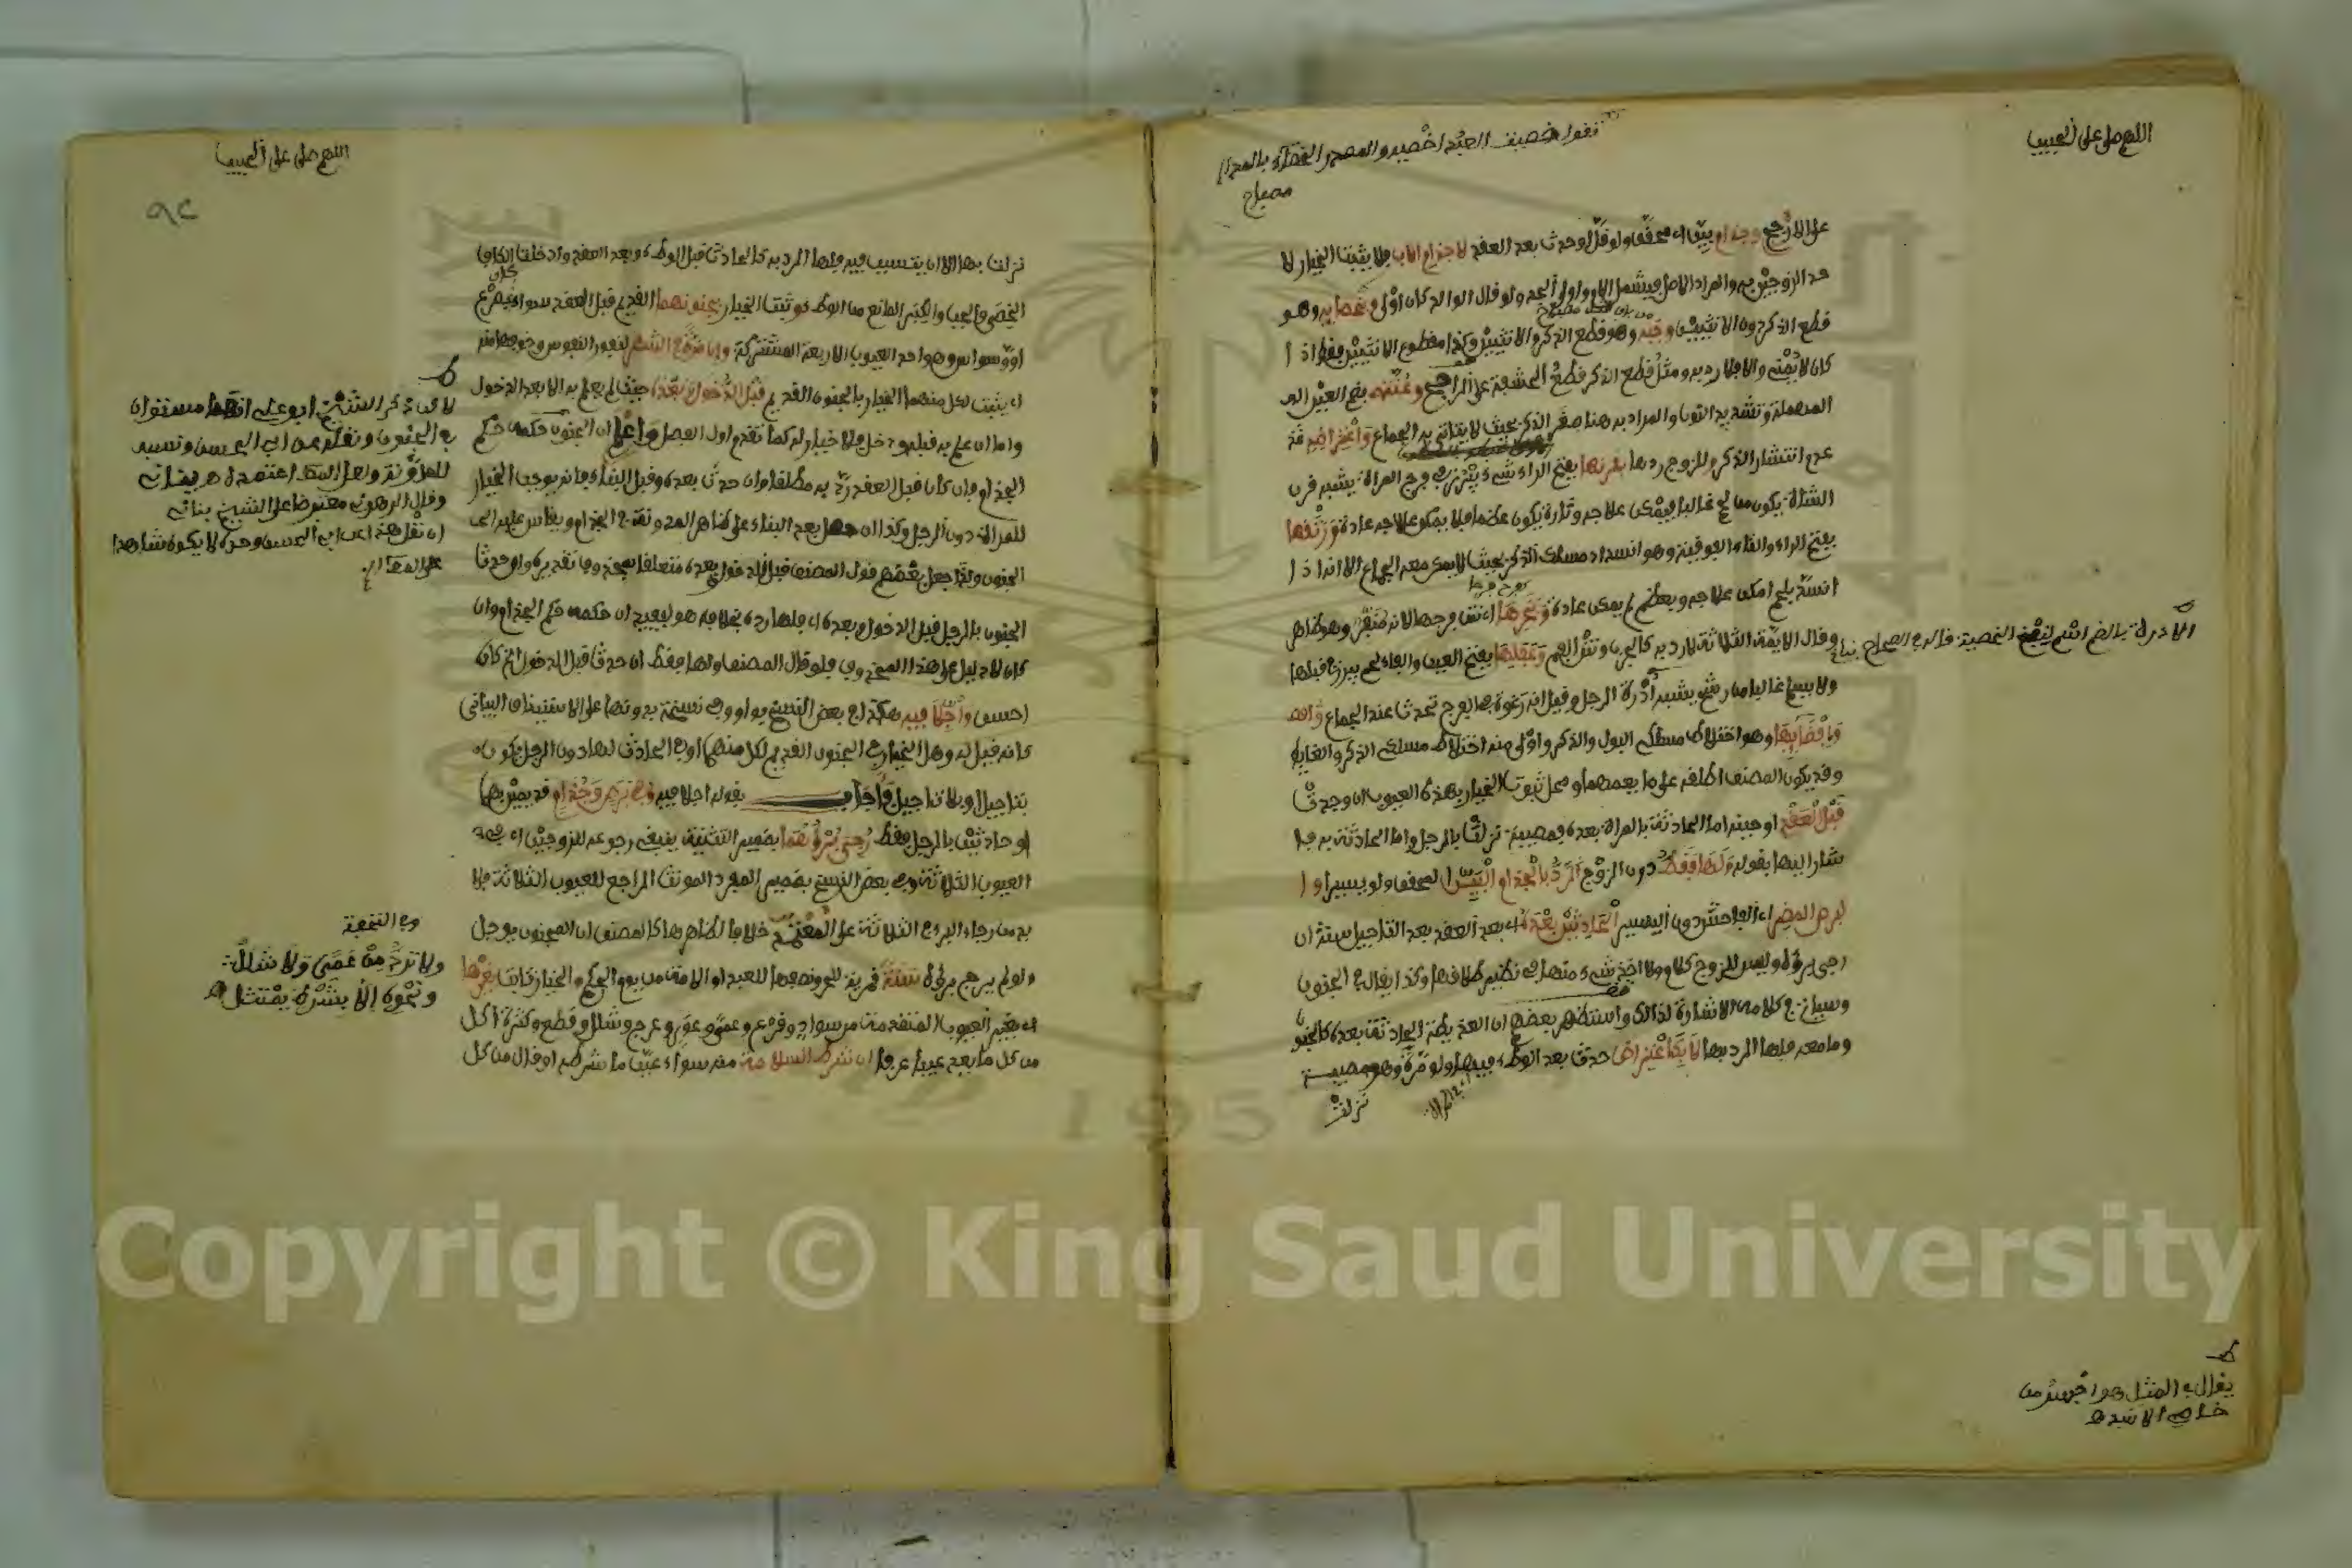 اللهم صل على الحبيب
تقول خصيت العبد اخصيه والمصدر الخصاء بالمد
مصباح
على الارجح وجذام بين اي محقق ولو قل لو حدث بعد العقد لا جذام الاب فلا يثبت الخيار لا
حد الزوجين به والمراد الاصل فيشمل الام واولى الجد ولو قال الوالد كان اولى وخصايه وهو
قطع الذكر دون الانثيين وجبه وهو قطع الذكر والانثيين وكذا مقطوع الانثيين فقط اذا
كان لا يمني والا فلا رد به ومثل قطع الذكر قطع الحشفة على الراجح وعنته بضم العين الـ
المهملة وتشديد النون والمراد به هنا صغر الذكر بحيث لا يتاتى به الجماع واعتراضه
عدم انتشار الذكر وللزوج ردها بقرنها بفتح الراء شيء يبرز في فرج المراة يشبه قرن
الشاة يكون من لحم غالبا فيمكن علاجه وتارة يكون عظما فلا يمكن علاجه عادة ورتقها
بفتح الراء والتاء الفوقية وهو انسداد مسلك الذكر بحيث لا يمكن معه الجماع الا انه اذا
انسد بلحم امكن علاجه وبعظم لم يمكن عادة وبخرها اي نتن فرجها لانه منفر
وقال الايمة الثلاثة لا رد به كالجرب ونتن الفم وعفلها بفتح العين والفاء لحم يبرز في قبلها
الادرة بالضم اسم لنفخ الخصية قاله في الصحاح بناني
ولا يسلم غالبا من رشح يشبه ادرة الرجل وقيل انه رغوة بها الفرج تحدث عند الجماع
وافضايها وهو اختلاط مسلكي البول والذكر واولى منه اختلاط مسلك الذكر والغايط
وقد يكون المصنف اطلقه على ما يعمهما ومحل ثبوت الخيار بهذه العيوب ان وجدت
قبل العقد او حينه اما الحادثة بالمراة بعده فمصيبة نزلت بالرجل واما الحادثة به فا
شار اليها بقوله ولها فقط دون الزوج الرد بالجذام البين اي المحقق ولو يسيرا و ا
لبرص المضر اي الفاحش دون اليسير الحادثين بعده اي بعد العقد بعد التاجيل سنة ان
رجي برؤه وليس للزوج كلام ولا اخذ شيء منها في نظير طلاقها وكذا يقال في الجنون
وسياتي في كلامه الاشارة لذلك واستظهر بعضهم ان العذيطة الحادثة بعده كالجنون
وما معه فلها الرد بها لا بكاعتراض حدث بعد الوطء فيها ولو مرة وهو مصيبة
نزلت
يقال في المثل هو اخسر من
اللهم صل على الحبيب
٩٢
نزلت بها الا ان يتسبب فيه فلها الرد به كالحادث قبل الوطء وبعد العقد وادخلت الكاف
الخصي والجب والكبر المانع من الوطء وثبت الخيار بجنونهما القديم قبل العقد سواء كان بصرع
او وسواس وهو احد العيوب الاربعة المشتركة وان مرة في الشهر لنفور النفوس وخوفها منه
اي يثبت لكل منهما الخيار بالجنون القديم قبل الدخول وبعده حيث لم يعلم به الا بعد الدخول
واما ان علم به قبله ودخل فلا خيار له كما تقدم اول الفصل واعلم ان الجنون حكمه حكم
الجذام فان كان قبل العقد رد به مطلقا وان حدث بعده وقبل البناء فانه يوجب الخيار
للمراة دون الرجل وكذا ان حصل بعد البناء على ظاهر المدونة في الجذام ويقاس عليه الـ
الجنون ولذا جعل بعضهم قول المصنف قبل الدخول وبعده متعلقا بمحذوف تقديره وان حدث
الجنون بالرجل قبل الدخول وبعده اي فلها رده بخلافه هو ليفيد ان حكمه حكم الجذام وان
كان لا دليل على هذا المحذوف فلو قال المصنف ولها فقط ان حدث قبل الدخول الخ كان
احسن واجلا فيه هكذا في بعض النسخ بواو وفي نسخة بدونها على الاستيناف البياني
كانه قيل له وهل الخيار في الجنون القديم لكل منهما او في الحادث لها دون الرجل يكون
بتاجيل او بلا تاجيل فاجاب بقوله اجلا فيه وفي برص وجذام قديمين بها
او حادثين بالرجل فقط رجي برؤهما بضمير التثنية ينبغي رجوعه للزوجين اي في هذه
العيوب الثلاثة وفي بعض النسخ بضمير المفرد المونث الراجع للعيوب الثلاثة فلا
بد من رجاء البرء في الثلاثة على المعتمد خلافا لظاهر كلام المصنف ان المجنون يوجل
ولو لم يرج برؤه سنة قمرية للحر ونصفها للعبد او الامة من يوم الحكم والخيار ثابت بغيرها
اي بغير العيوب المتقدمة من سواد وقرع وعمى وعور وعرج وشلل وقطع وكثرة اكل
من كل ما يعد عيبا عرفا ان شرط السلامة منه سواء عين ما شرطه او قال من كل
لا كن ذكر الشيخ ابو علي انهما مستويان
في الجنون ونقله عن ابي الحسن ونسبه
للمدونة ولعل المصنف اعتمده اه بناني
وقال الرهوني معترضا على الشيخ بناني
ان نقل هذا عن ابي الحسن وحده لا يكون شاهدا
وفي التحفة
ولا ترد من عمى ولا شلل
ونحوه الا بشرط يمتثل